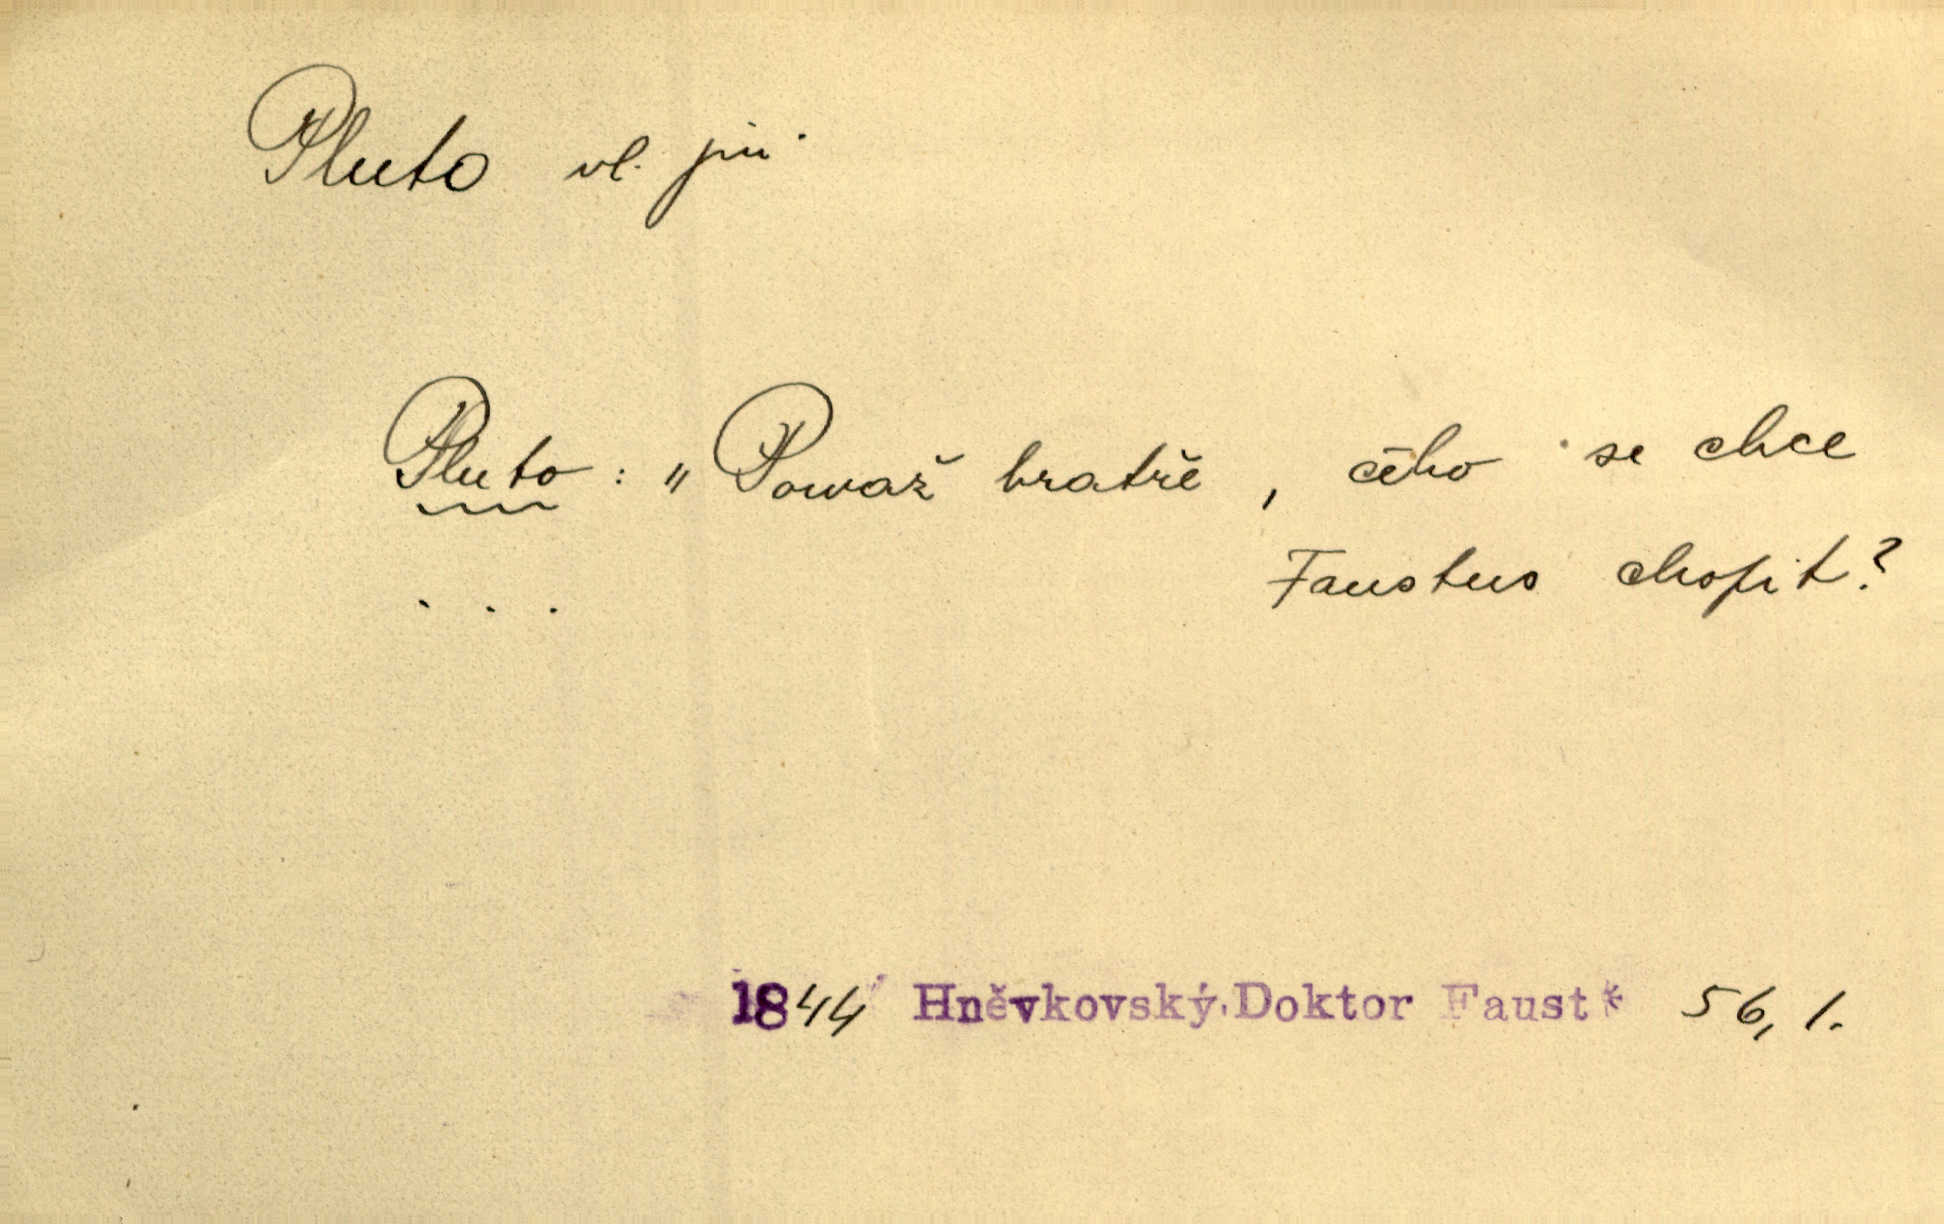 Pluto vl. jm.
Pluto : „Powaž bratře, čeho se chce
. . . Faustus chopit?
1844 Hněvkovský, Doktor Faust * 56, 1.